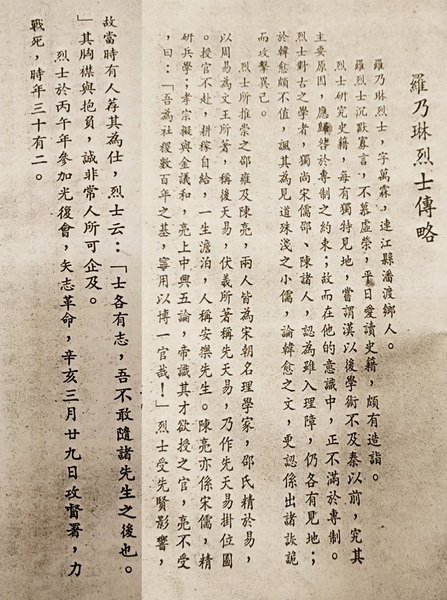 羅乃琳烈士傳略
羅乃琳烈士,字萬霖,連江縣潘渡鄉人。
羅烈士沉默寡言,不慕虛榮,平日愛讀史籍,頗有造詣。
烈士研究史籍,每有獨特見地,嘗謂漢以後學術不及秦以前,究其
主要原因,應歸咎於專制之約束;故而在他的意識中,正不滿於專制。
烈士對古之學者,獨尚宋儒邵、陳諸人,認為雖入理障,仍各有見地;
於韓愈頗不值,諷其為見道殊淺之小儒,論韓愈之文,更認係出諸詼詭
而攻擊異己。
烈士所推崇之邵雍及陳亮,兩人皆為宋朝名理學家,邵氏精於易,
以周易為文王所著,稱後天易,伏羲所著稱先天易,乃作先天易掛位圖
。授官不赴,耕稼自給,一生澹泊,人稱安樂先生。陳亮亦係宋儒,精
研兵學;孝宗擬與金議和,亮上中興五論,帝識其才欲授之官,亮不受
,曰:「吾為社稷數百年之基,寧用以博一官哉!」烈士受先賢影響,
故當時有人荐其為仕,烈士云:「士各有志,吾不敢隨諸先生之後也。
」其胸襟與抱負,誠非常人所可企及。
烈士於丙午年參加光復會,矢志革命,辛亥三月廿九日攻督署,力
戰死,時年三十有二。